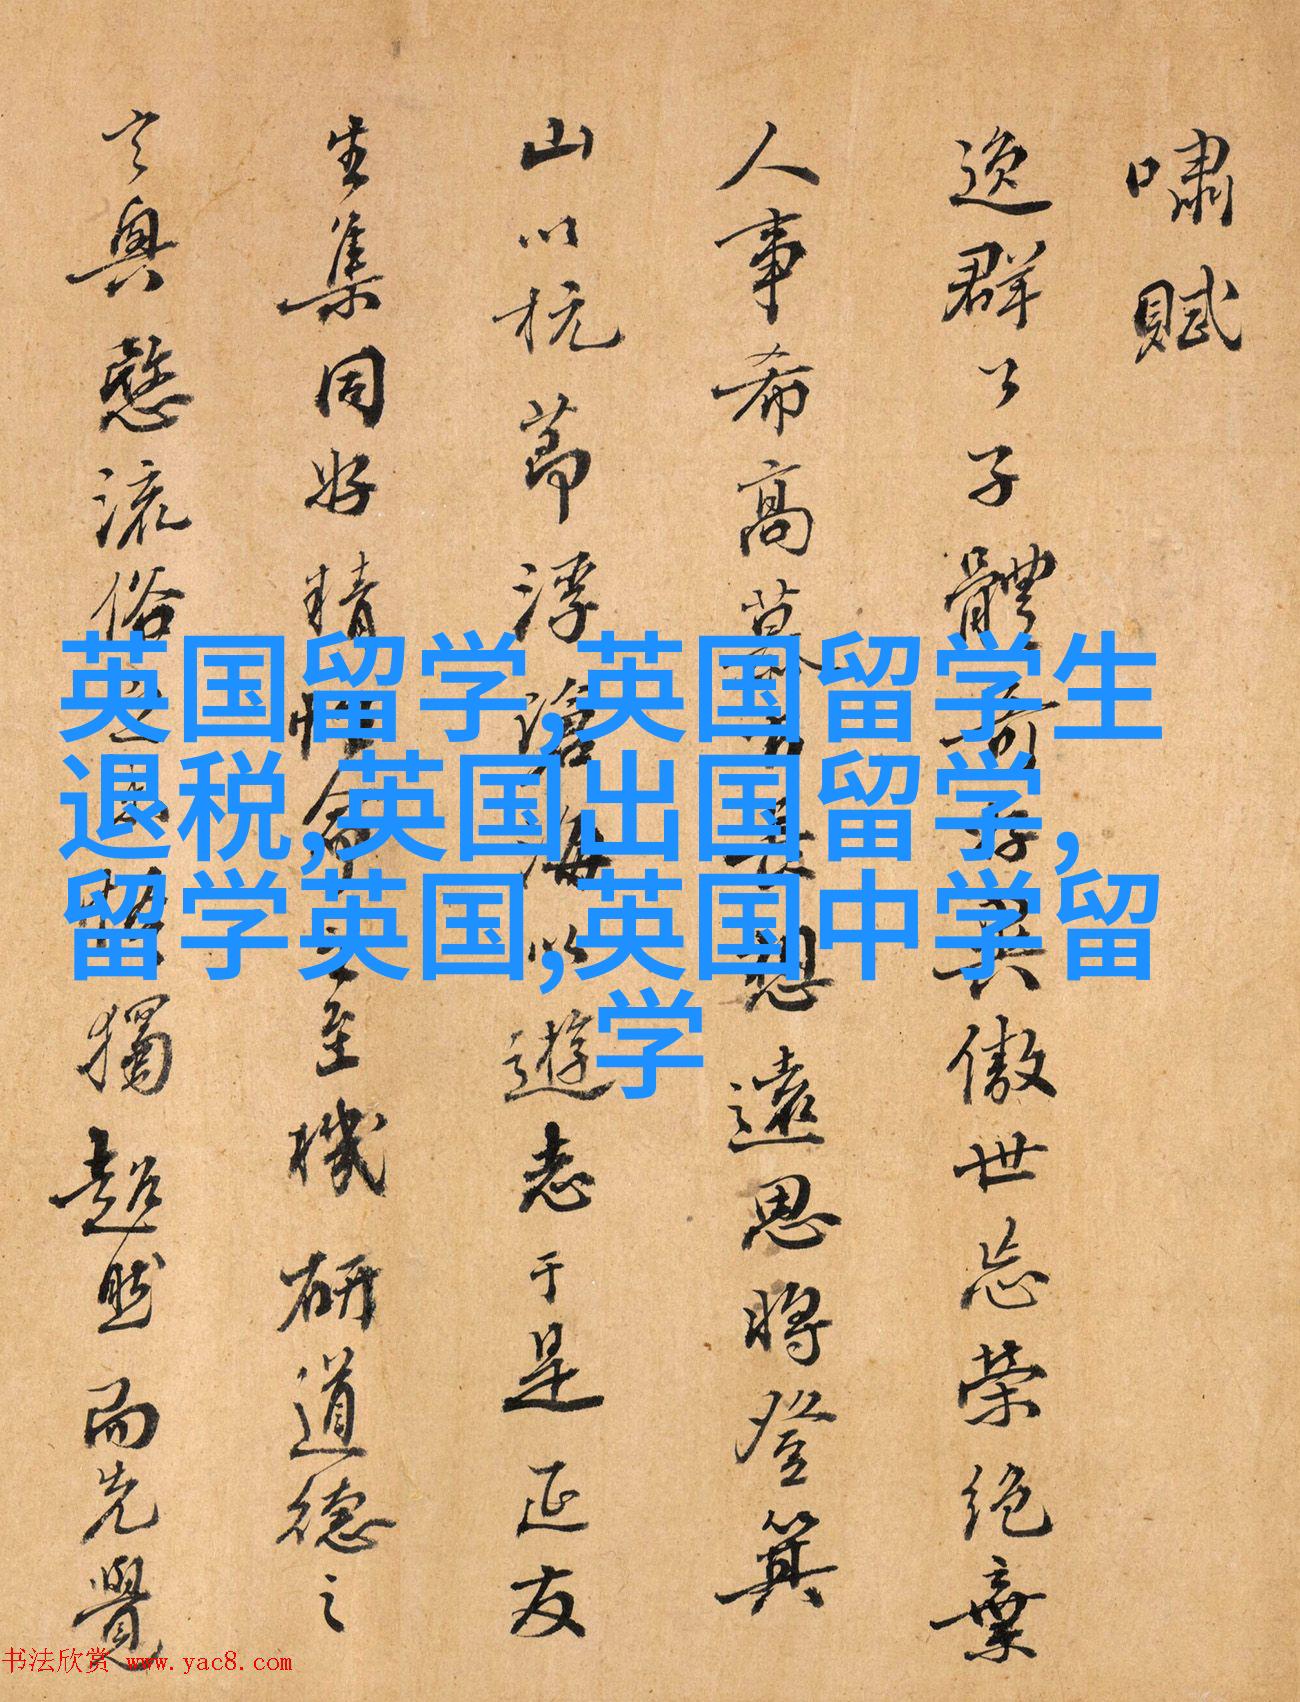 嘯賦
逸群公子體奇好異傲世忘榮絕棄
人事希高慕古長想遠思將登箕
山以抗節浮滄海以遊志于是延友
生集同好精性命之至機研道德之
玄奧愍流俗之未悟獨超然而先覺
英国留学,英国留学生
退税,英国出国留学,
留学英国,英国中学留
学
书法欣赏 www.yac8.com